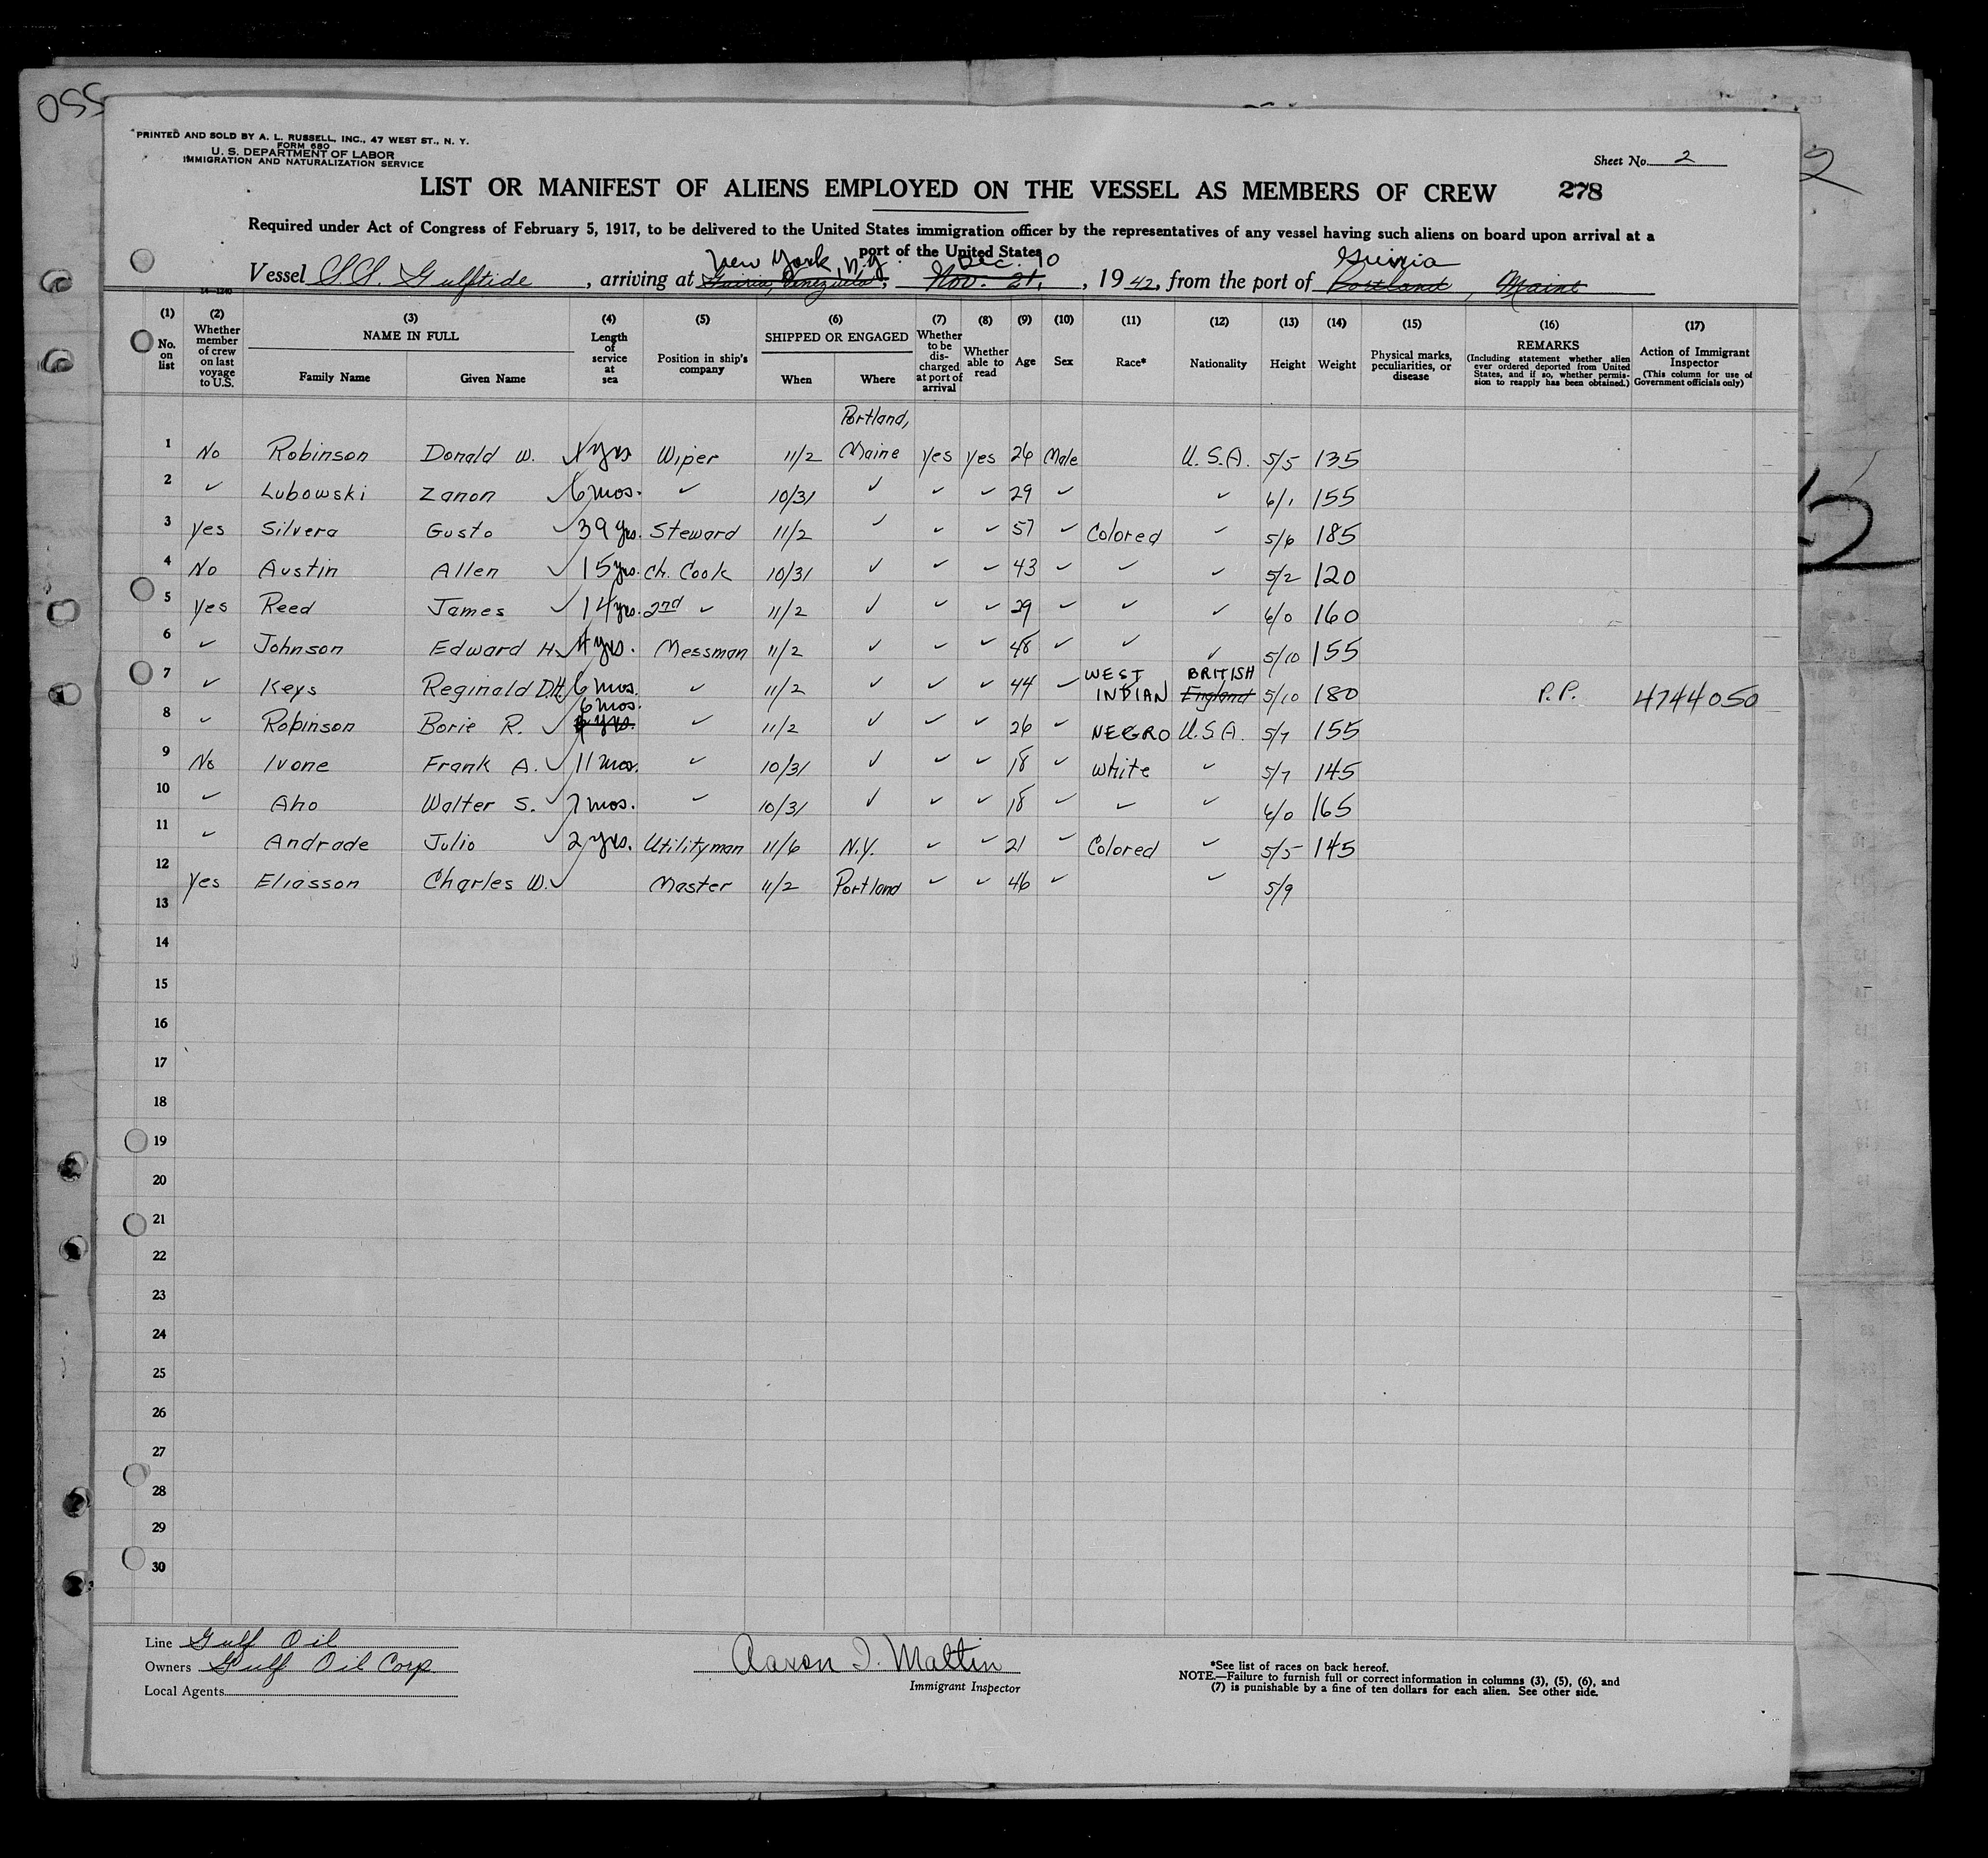 055
PRINTED AND SOLD BY A. L. RUSSELL, INC., 47 WEST ST., N. Y.
FORM 680
U. S. DEPARTMENT OF LABOR
IMMIGRATION AND NATURALIZATION SERVICE
Sheet No. 2
LIST OR MANIFEST OF ALIENS EMPLOYED ON THE VESSEL AS MEMBERS OF CREW 278
Required under Act of Congress of February 5, 1917, to be delivered to the United States immigration officer by the representatives of any vessel having such aliens on board upon arrival at a
port of the United States
New York, N.Y. Dec. 10 Guiria
Vessel S.S. Gulftide, arriving at Guiria, Venezuela, Nov. 21, 1942, from the port of Portland, Maine
14-1240
(1) No. on list
(2) Whether member of crew on last voyage to U.S.
(3) NAME IN FULL Family Name Given Name
(4) Length of service at sea
(5) Position in ship's company
(6) SHIPPED OR ENGAGED When Where
(7) Whether to be discharged at port of arrival
(8) Whether able to read
(9) Age
(10) Sex
(11) Race*
(12) Nationality
(13) Height
(14) Weight
(15) Physical marks, peculiarities, or disease
(16) REMARKS (Including statement whether alien ever ordered deported from United States, and if so, whether permission to reapply has been obtained.)
(17) Action of Immigrant Inspector (This column for use of Government officials only)
Portland,
1 No Robinson Donald W. 4 yrs Wiper 11/2 Maine yes yes 26 Male U.S.A. 5/5 135
2 ✓ Lubowski Zanon ✓ 6 mos. ✓ 10/31 ✓ ✓ ✓ 29 ✓ ✓ 6/1 155
3 yes Silvera Gusto ✓ 39 yrs. Steward 11/2 ✓ ✓ ✓ 57 ✓ Colored ✓ 5/6 185
4 No Austin Allen ✓ 15 yrs. Ch. Cook 10/31 ✓ ✓ ✓ 43 ✓ ✓ ✓ 5/2 120
5 yes Reed James ✓ 14 yrs. 2nd ✓ 11/2 ✓ ✓ ✓ 29 ✓ ✓ ✓ 6/0 160
6 ✓ Johnson Edward H. ✓ 4 yrs. Messman 11/2 ✓ ✓ ✓ 48 ✓ ✓ ✓ 5/10 155
7 ✓ Keys Reginald D.H. ✓ 6 mos. ✓ 11/2 ✓ ✓ ✓ 44 ✓ WEST INDIAN BRITISH England 5/10 180 P.P. 4744050
8 ✓ Robinson Borie R. ✓ 6 mos. yrs. ✓ 11/2 ✓ ✓ ✓ 26 ✓ NEGRO U.S.A. 5/7 155
9 No Ivone Frank A. ✓ 11 mos. ✓ 10/31 ✓ ✓ ✓ 18 ✓ White ✓ 5/7 145
10 ✓ Aho Walter S. ✓ 7 mos. ✓ 10/31 ✓ ✓ ✓ 18 ✓ ✓ ✓ 6/0 165
11 ✓ Andrade Julio ✓ 2 yrs. Utilityman 11/6 N.Y. ✓ ✓ 21 ✓ Colored ✓ 5/5 145
12 yes Eliasson Charles W. ✓ Master 11/2 Portland ✓ ✓ 46 ✓ ✓ 5/9
13
14
15
16
17
18
19
20
21
22
23
24
25
26
27
28
29
30
Line Gulf Oil
Owners Gulf Oil Corp.
Local Agents
Aaron I. Maltin
Immigrant Inspector
*See list of races on back hereof.
NOTE.—Failure to furnish full or correct information in columns (3), (5), (6), and
(7) is punishable by a fine of ten dollars for each alien. See other side.